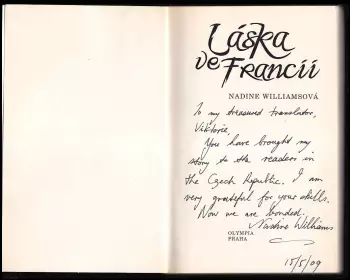 Láska
ve Francii
NADINE WILLIAMSOVÁ
To my treasured translator,
Viktorie,
You have brought my
story to the readers in
the Czech Republic. I am
very grateful for your skills.
Now we are bonded.
Nadine Williams
OLYMPIA
PRAHA
15/5/09